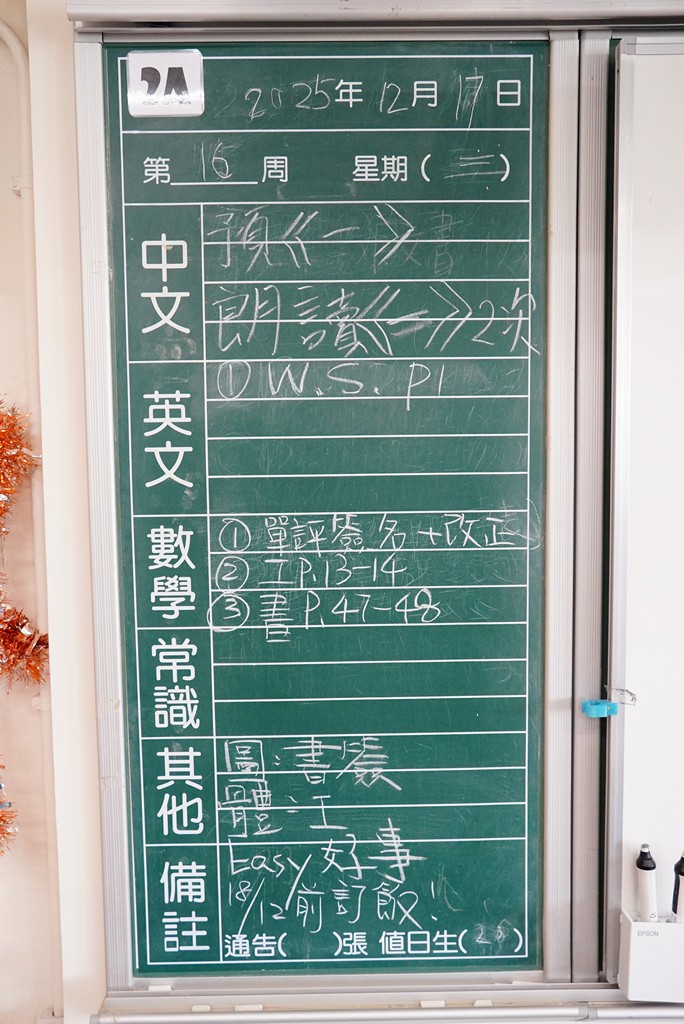 2A
2025年12月17日
第16周 星期(三)
中文
預《一》
朗讀《一》2次
英文
① W.S. P1
數學
① 單評簽名+改正
② 工P.13-14
③ 書P.47-48
常識
其他
圖:書簽
體:工
備註
Easy 好事
18/12前訂飯!
通告( )張 值日生( )
EPSON